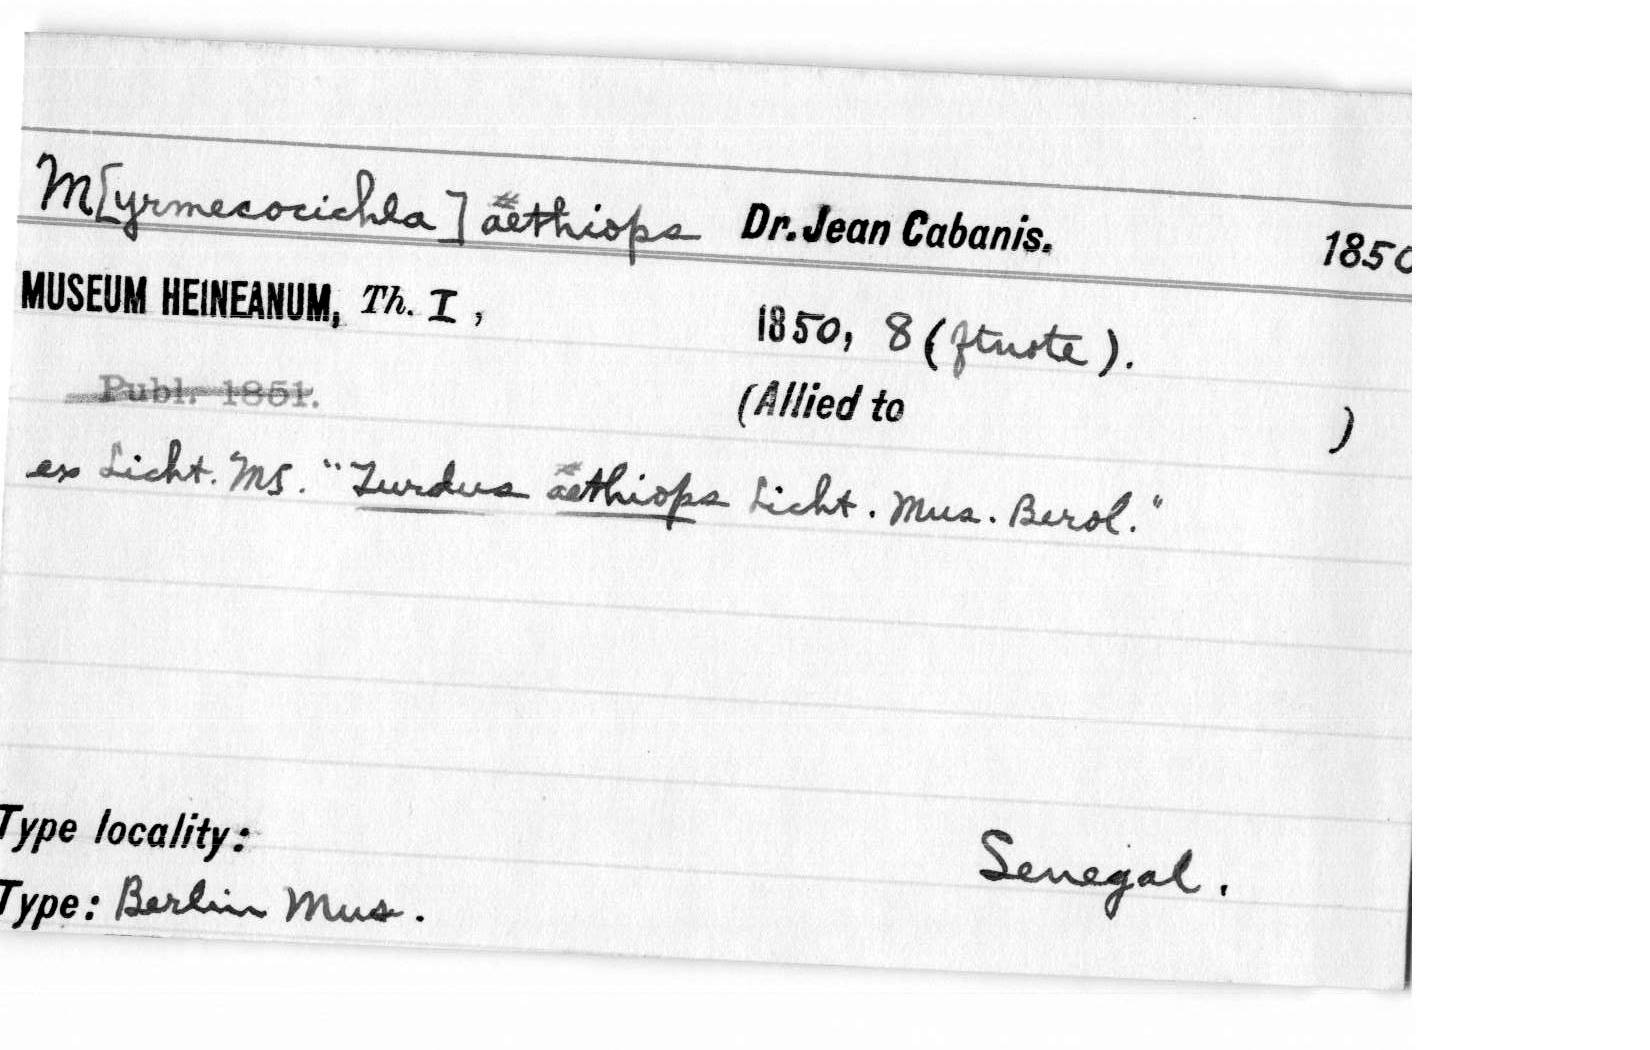 M[yrmecocichla] aethiops Dr. Jean Cabanis. 1850
MUSEUM HEINEANUM, Th. I, 1850, 8 (ftnote).
Publ. 1851. (Allied to )
ex Licht. MS. "Turdus aethiops Licht. Mus. Berol."
Type locality: Senegal.
Type: Berlin Mus.